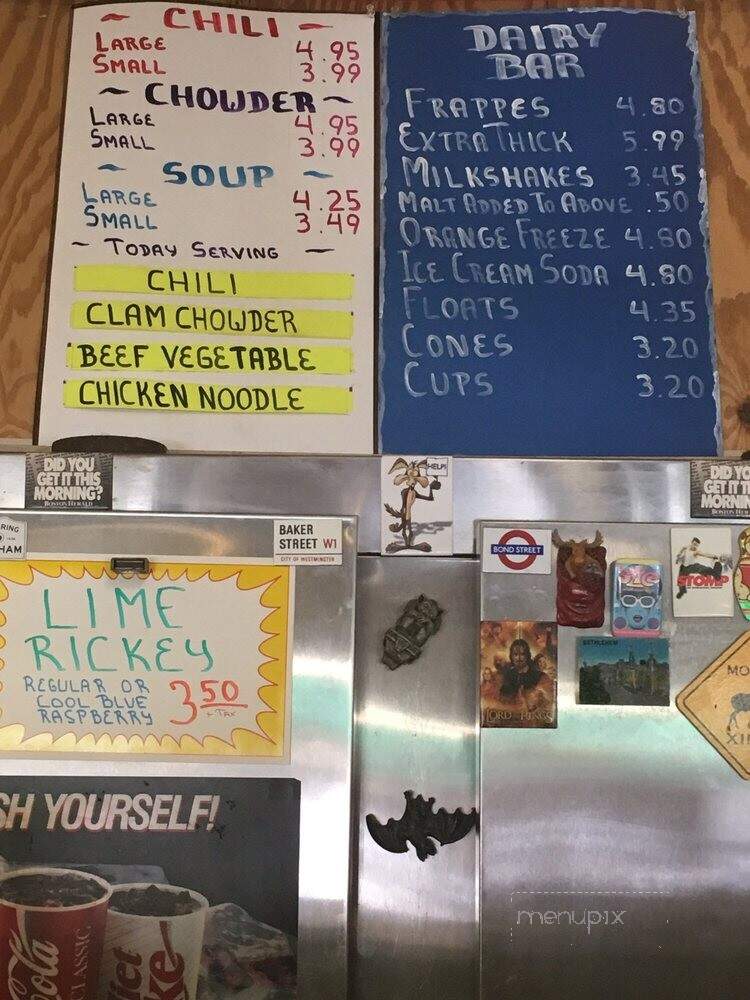 ~ CHILI ~
LARGE 4.95
SMALL 3.99
~ CHOWDER ~
LARGE 4.95
SMALL 3.99
~ SOUP ~
LARGE 4.25
SMALL 3.49
~ TODAY SERVING ~
CHILI
CLAM CHOWDER
BEEF VEGETABLE
CHICKEN NOODLE
DAIRY
BAR
FRAPPES 4.80
EXTRA THICK 5.99
MILKSHAKES 3.45
MALT ADDED TO ABOVE .50
ORANGE FREEZE 4.80
ICE CREAM SODA 4.80
FLOATS 4.35
CONES 3.20
CUPS 3.20
DID YOU
GET IT THIS
MORNING?
BOSTON HERALD
HELP!
DID YO
GET IT T
MORNIN
BOSTON HER
RING
HAM
BAKER
STREET W1
CITY OF WESTMINSTER
BOND STREET
STOMP
LIME
RICKEY
REGULAR OR
COOL BLUE
RASPBERRY
3.50
+ TAX
LORD OF THE RINGS
BETHLEHEM
MO
XI
SH YOURSELF!
Cola
CLASSIC
iet
ke
menupix